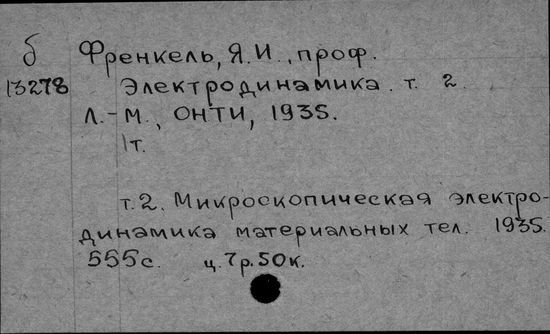 б Френкель, Я.И., проф.
13278 Электродинамика. т. 2.
Л.-М., ОНТИ, 1935.
1т.
т.2. Микроскопическая электро-
динамика материальных тел. 1935.
555с. ц.7р.50к.